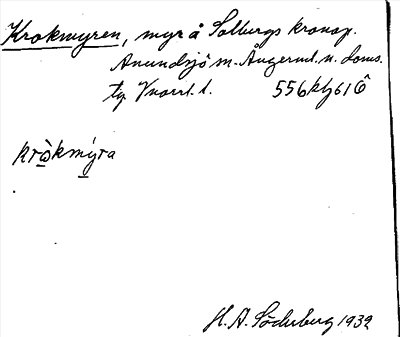 Krokmyren, myr å Solbergs kronop.
Anundsjö m. Ångerml. n. doms.
tg Vnorrl. l. 556kkz61ö
kròkmýra
H. A. Söderberg 1932